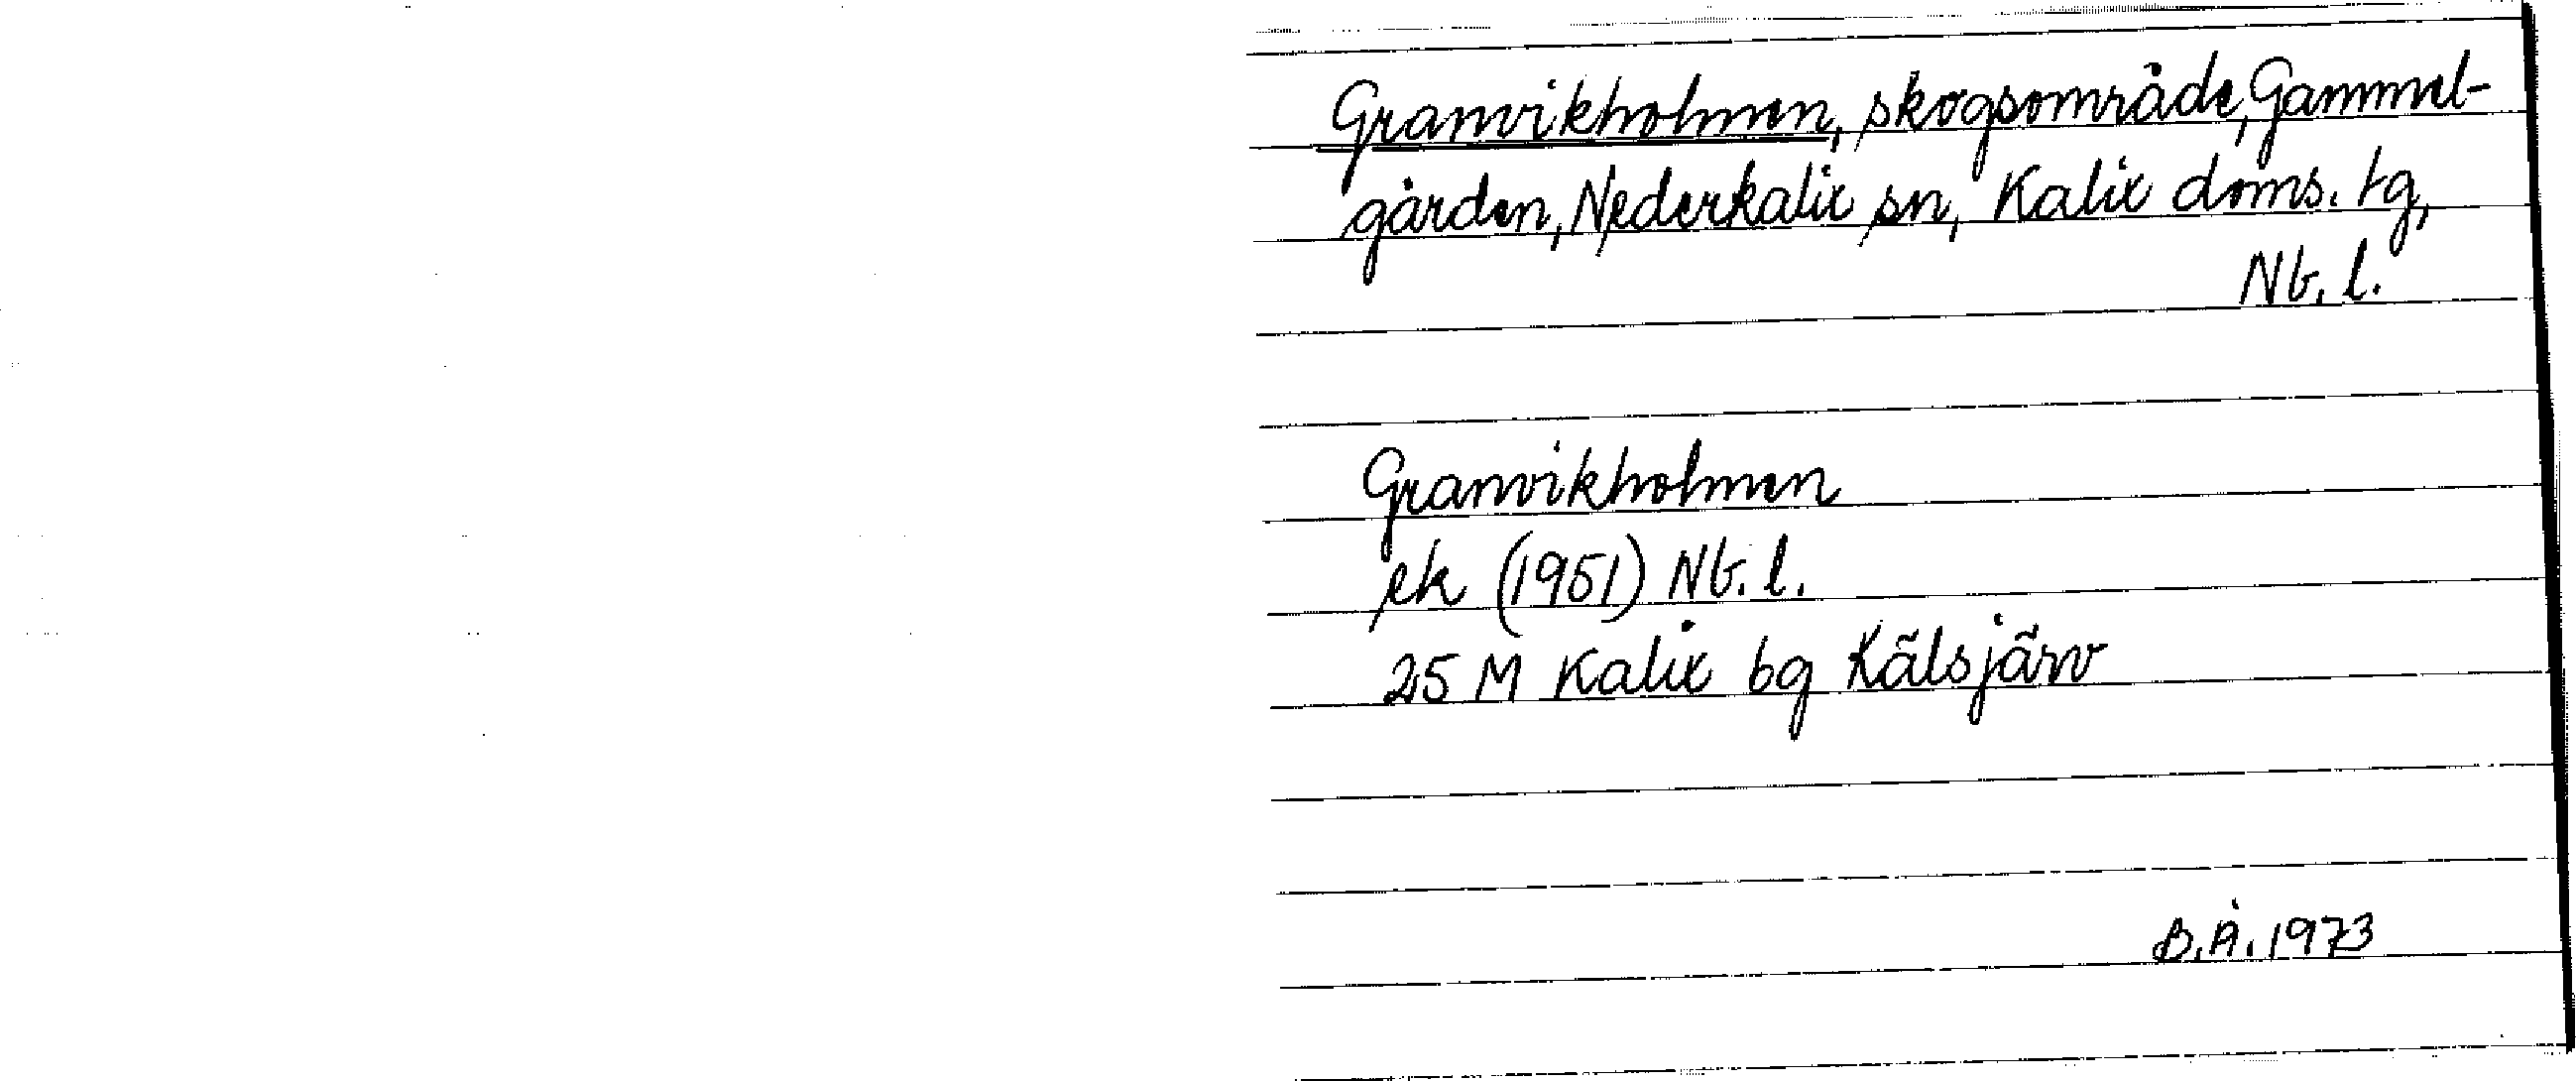 Granvikholmen, skogsområde, Gammel-
gården, Nederkalix sn, Kalix doms. tg,
Nb. l.
Granvikholmen
ek (1951) Nb. l.
25 M Kalix bg Kälsjärv
B.Å. 1973